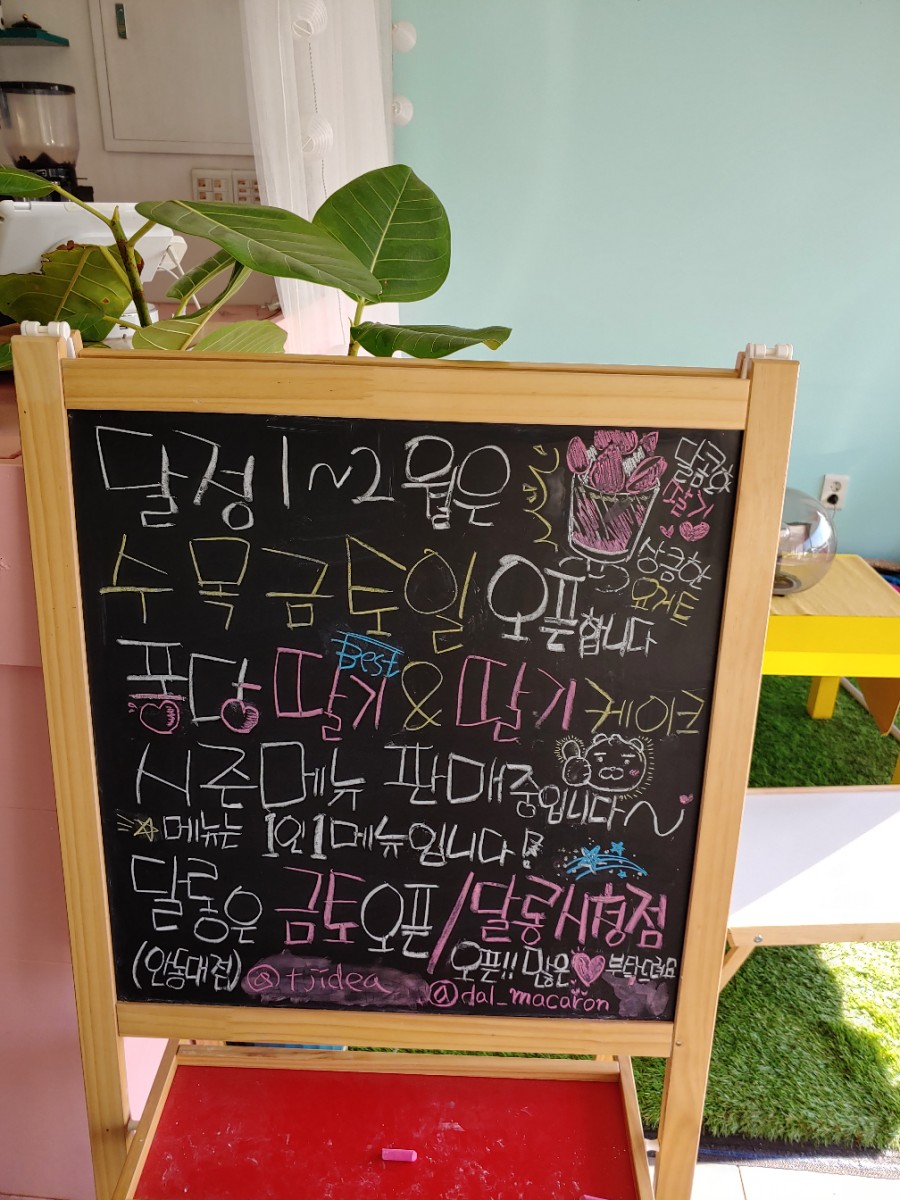 달정 1~2 월은
달콤한
딸기
수 목 금 토 일 오픈합니다
상큼한
요거트
퐁당 딸기 & 딸기 케이크
Best
시즌메뉴 판매중입니다~
메뉴는 1인1메뉴입니다!
달롱은 금토오픈/달롱서형점
(안동대점) 오픈!! 많은 부탁드려요
@tjidea @dal_macaron